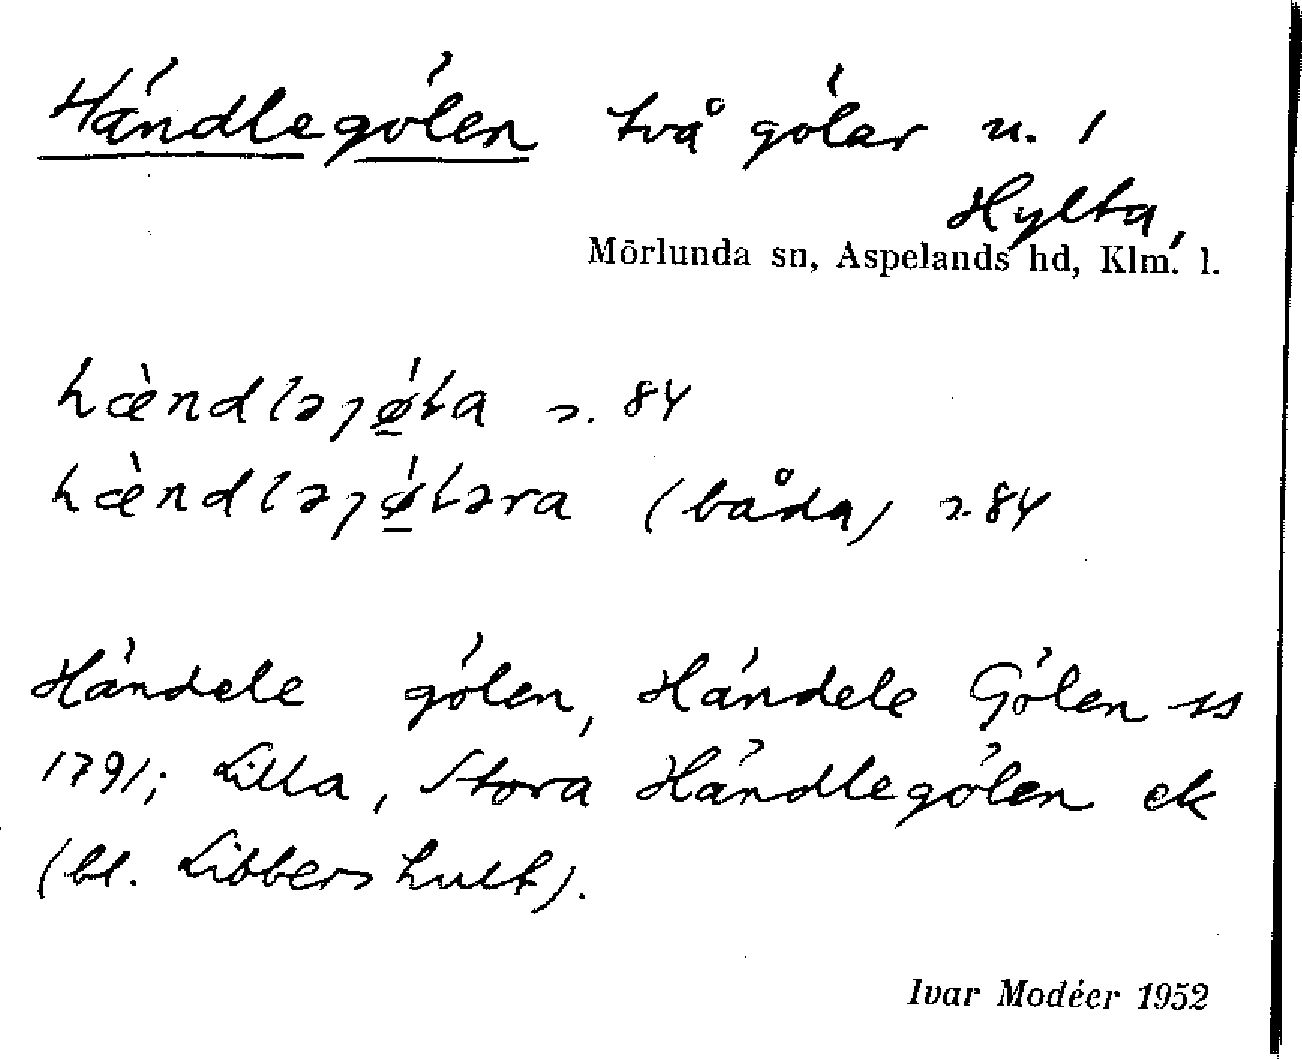 Händlegölen två gölar u. 1
Hylta,
Mörlunda sn, Aspelands hd, Klm. l.
hæ̀ndləȷǿ̱ɫa s. 84
hæ̀ndləȷǿ̱ɫəra (båda) s. 84
Händele gölen, Händele Gölen ss
1791; Lilla, Stora Händlegölen ek
(bl. Libbershult).
Ivar Modéer 1952